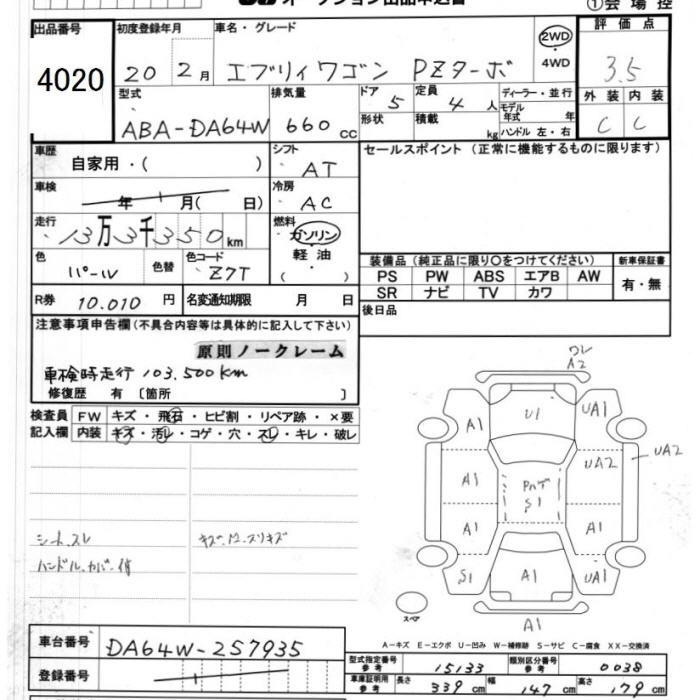 オークション出品申込書 ①会場控
出品番号 4020
初度登録年月 20 2月
車名・グレード エブリィワゴン PZターボ
2WD・4WD
評価点 3.5
外装 C 内装 C
型式 ABA-DA64W
排気量 660cc
ドア 5
定員 4人
形状
積載 kg
ディーラー・並行
モデル年式 年式
ハンドル 左・右
車歴 自家用・( )
シフト AT
セールスポイント(正常に機能するものに限ります)
車検 年 月(日)
冷房 AC
走行 13万3千350km
燃料 ガソリン・軽油・( )
色 パール 色替 色コード Z7T
装備品(純正品に限り○をつけてください) 新車保証書
PS PW ABS エアB AW 有・無
SR ナビ TV カワ
R券 10.010円 名変通知期限 月 日
後日品
注意事項申告欄(不具合内容等は具体的に記入して下さい)
原則ノークレーム
車検時走行 103.500km
修復歴 有 〔箇所 〕
検査員記入欄
FW キズ・飛石・ヒビ割・リペア跡・×要
内装 キズ・汚レ・コゲ・穴・スレ・キレ・破レ
シート、スレ
ハンドル、カバー
ワレ
A2
U1 UA1
A1
A1 UA2 UA2
S1
A1 A1
S1 A1 UA1
スペア
A1
A-キズ E-エクボ U-凹み W-補修跡 S-サビ C-腐食 XX-交換済
車台番号 DA64W-257935
登録番号
型式指定番号 参考 15133 類別区分番号 参考 0038
車庫証明用 参考 長さ 339cm 幅 147cm 高さ 179cm